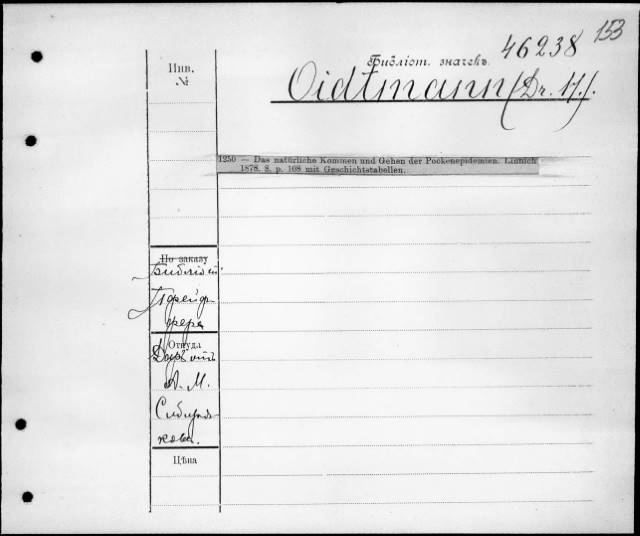 153
46238
Инв.
№
Библіот. значекъ
Oidtmann (Dr. H.).
1250 — Das natürliche Kommen und Gehen der Pockenepidemien. Linnich
1878. 8. p. 108 mit Geschichtstabellen.
По заказу
Библіот.
Пфейф-
фера
Откуда
Даръ отъ
А. М.
Сибиря-
кова.
Цѣна